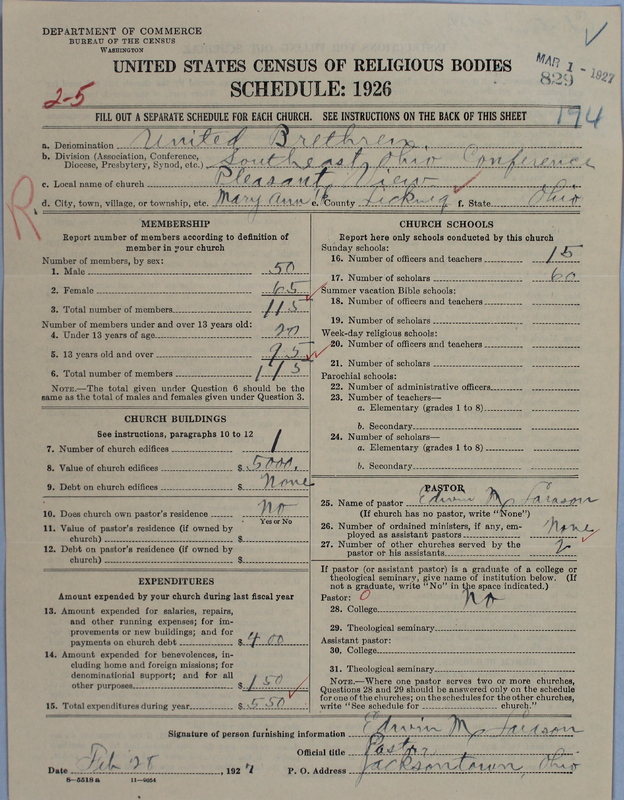 DEPARTMENT OF COMMERCE
BUREAU OF THE CENSUS
WASHINGTON
MAR 1 - 1927
829
UNITED STATES CENSUS OF RELIGIOUS BODIES
SCHEDULE: 1926
2-5
FILL OUT A SEPARATE SCHEDULE FOR EACH CHURCH. SEE INSTRUCTIONS ON THE BACK OF THIS SHEET
194
a. Denomination United Brethren
b. Division (Association, Conference, Diocese, Presbytery, Synod, etc.) Southeast Ohio Conference
c. Local name of church Pleasant View
d. City, town, village, or township, etc. Mary Ann e. County Licking f. State Ohio
R
MEMBERSHIP
Report number of members according to definition of
member in your church
Number of members, by sex:
1. Male 50
2. Female 65
3. Total number of members 115
Number of members under and over 13 years old:
4. Under 13 years of age 20
5. 13 years old and over 95
6. Total number of members 115
NOTE.—The total given under Question 6 should be
same as the total of males and females given under Question 3.
CHURCH BUILDINGS
See instructions, paragraphs 10 to 12
7. Number of church edifices 1
8. Value of church edifices $ 5000.
9. Debt on church edifices $ None
10. Does church own pastor's residence No
Yes or No
11. Value of pastor's residence (if owned by
church) $
12. Debt on pastor's residence (if owned by
church) $
EXPENDITURES
Amount expended by your church during last fiscal year
13. Amount expended for salaries, repairs,
and other running expenses; for im-
provements or new buildings; and for
payments on church debt $ 400
14. Amount expended for benevolences, in-
cluding home and foreign missions; for
denominational support; and for all
other purposes $ 150
15. Total expenditures during year $ 550
CHURCH SCHOOLS
Report here only schools conducted by this church
Sunday schools:
16. Number of officers and teachers 15
17. Number of scholars 60
Summer vacation Bible schools:
18. Number of officers and teachers
19. Number of scholars
Week-day religious schools:
20. Number of officers and teachers
21. Number of scholars
Parochial schools:
22. Number of administrative officers
23. Number of teachers—
a. Elementary (grades 1 to 8)
b. Secondary
24. Number of scholars—
a. Elementary (grades 1 to 8)
b. Secondary
PASTOR
25. Name of pastor Edwin M.
(If church has no pastor, write "None")
26. Number of ordained ministers, if any, em-
ployed as assistant pastors None
27. Number of other churches served by the
pastor or his assistants 2
If pastor (or assistant pastor) is a graduate of a college or
theological seminary, give name of institution below. (If
not a graduate, write "No" in the space indicated.)
Pastor: 0 No
28. College
29. Theological seminary
Assistant pastor:
30. College
31. Theological seminary
NOTE.—Where one pastor serves two or more churches,
Questions 28 and 29 should be answered only on the schedule
for one of the churches; on the schedules for the other churches,
write "See schedule for church."
Signature of person furnishing information Edwin M.
Official title Pastor
Date Feb 28, 1927 P. O. Address Jacksontown, Ohio
8-5518a 11-9054